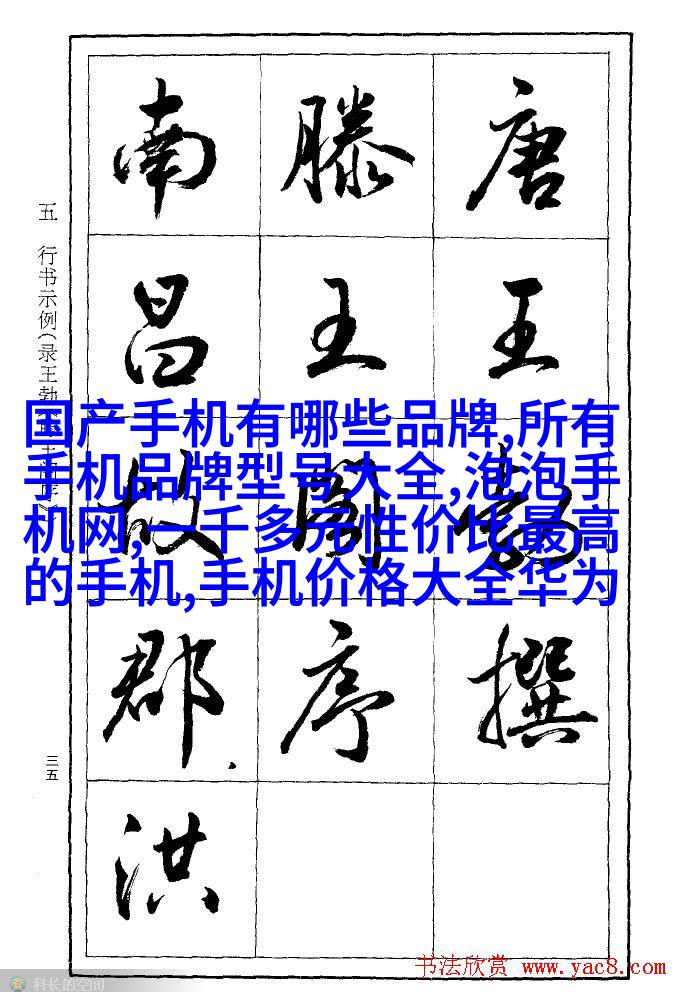 唐王勃撰
滕王阁序
南昌故郡洪
五 行书示例(录王勃
三五
国产手机有哪些品牌,所有
手机品牌型号大全,泡泡手
机网,一千多元性价比最高
的手机,手机价格大全华为
书法欣赏 www.yac8.com
科长的空间